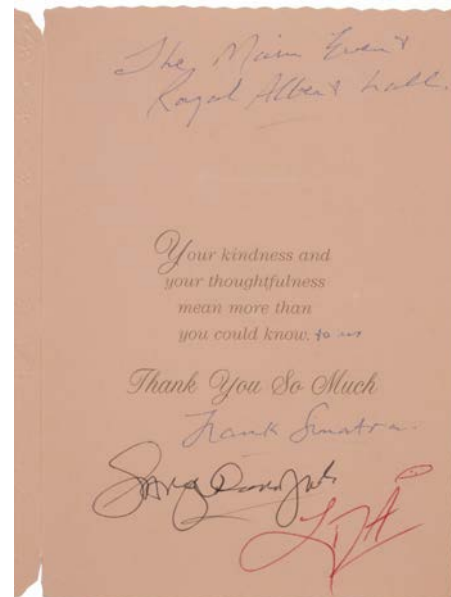 The Main Event
Royal Albert Hall.
Your kindness and
your thoughtfulness
mean more than
you could know. to us
Thank You So Much
Frank Sinatra